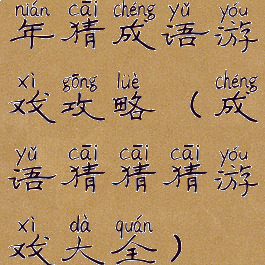 nián cāi chéng yǔ yóu
年猜成语游
xì gōng luè chéng
戏攻略（成
yǔ cāi cāi cāi yóu
语猜猜猜游
xì dà quán
戏大全）